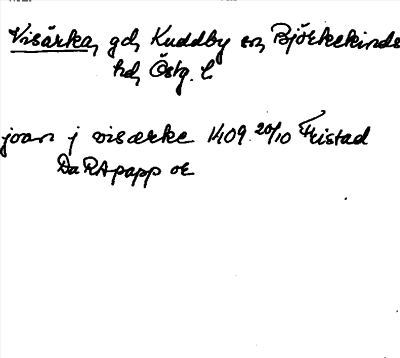 Visärka, gd, Kuddby sn, Björkekinds
hd, Östg. l
joan j visærke 1409 20/10 Fristad
Da RApapp or